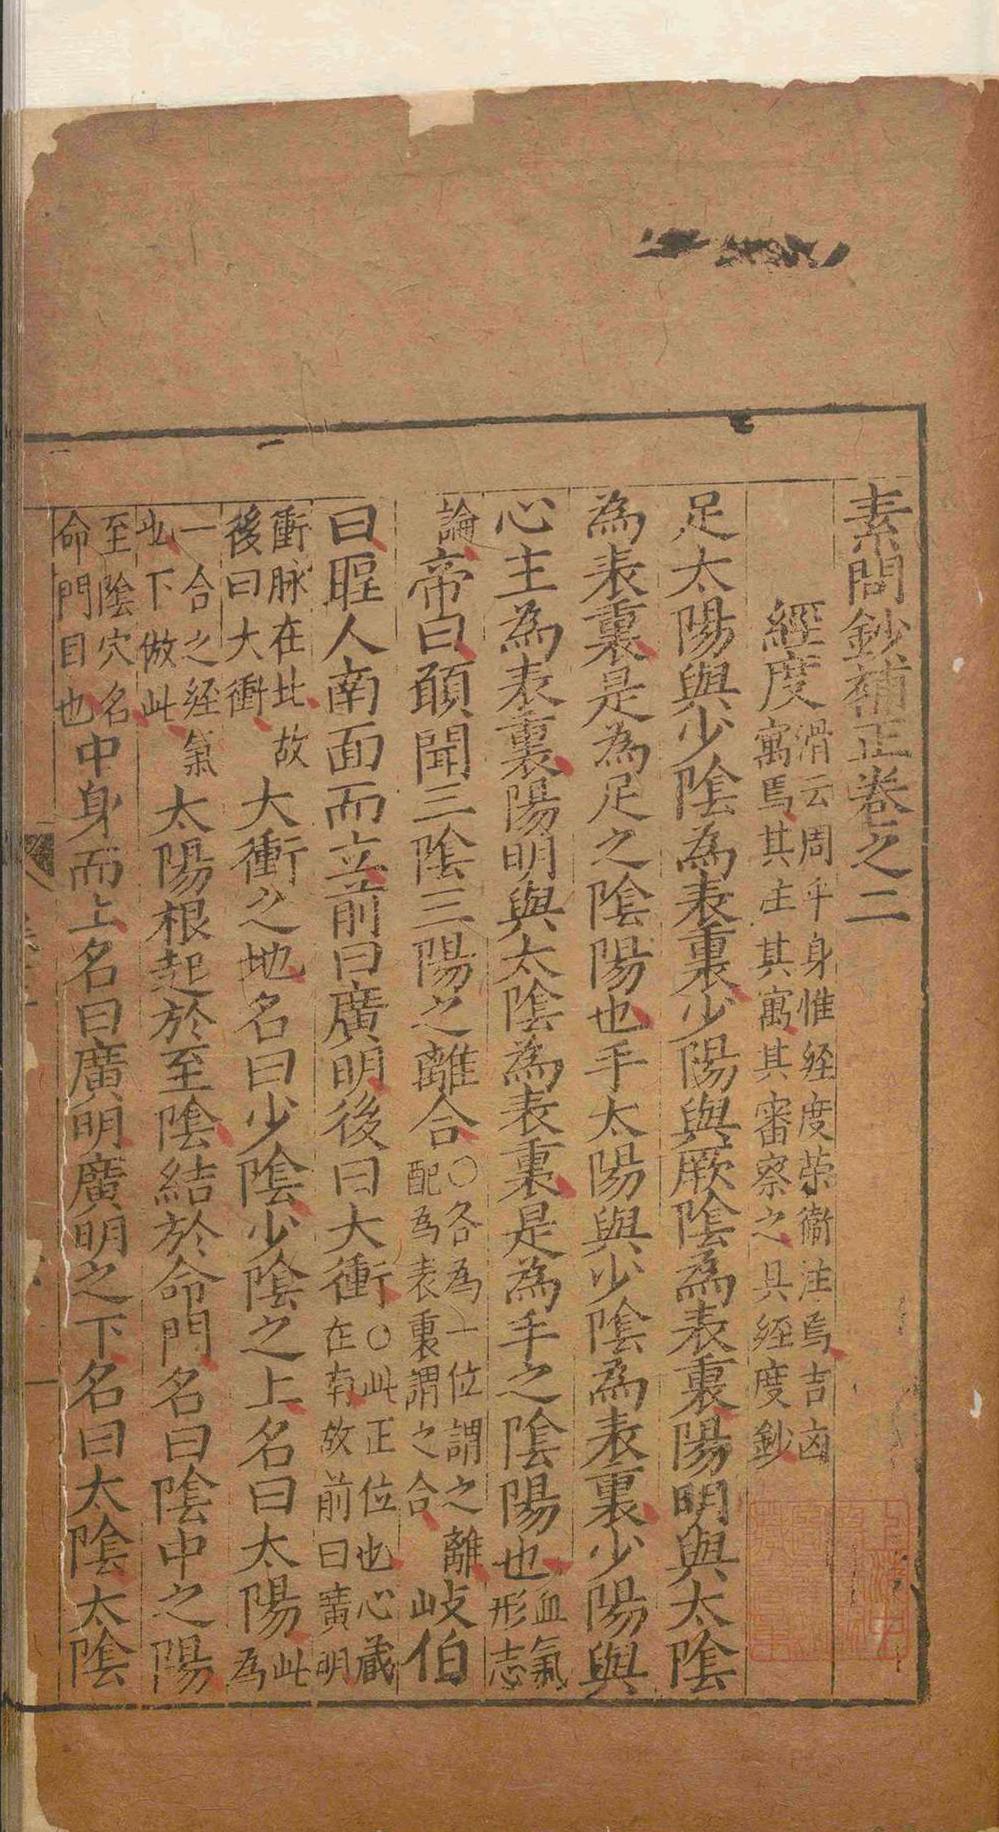 素問鈔補正卷之二
經度滑云周乎身惟経度荣衞注焉吉㐫
寓焉其主其寓其審察之具經度鈔
足太陽與少陰為表裏少陽與厥陰為表裏陽明與太陰
為表裏是為足之陰陽也手太陽與少陰為表裏少陽與
心主為表裏陽明與太陰為表裏是為手之陰陽也血氣
形志
論帝曰願聞三陰三陽之離合○各為一位謂之離
配為表裏謂之合岐伯
曰聖人南面而立前曰廣明後曰大衝○此正位也心藏
在南故前曰廣明
衝脉在北故
後曰大衝大衝之地名曰少陰少陰之上名曰太陽此
為
一合之経氣
也下倣此太陽根起於至陰結於命門名曰陰中之陽
至陰穴名
命門目也中身而上名曰廣明廣明之下名曰太陰太陰